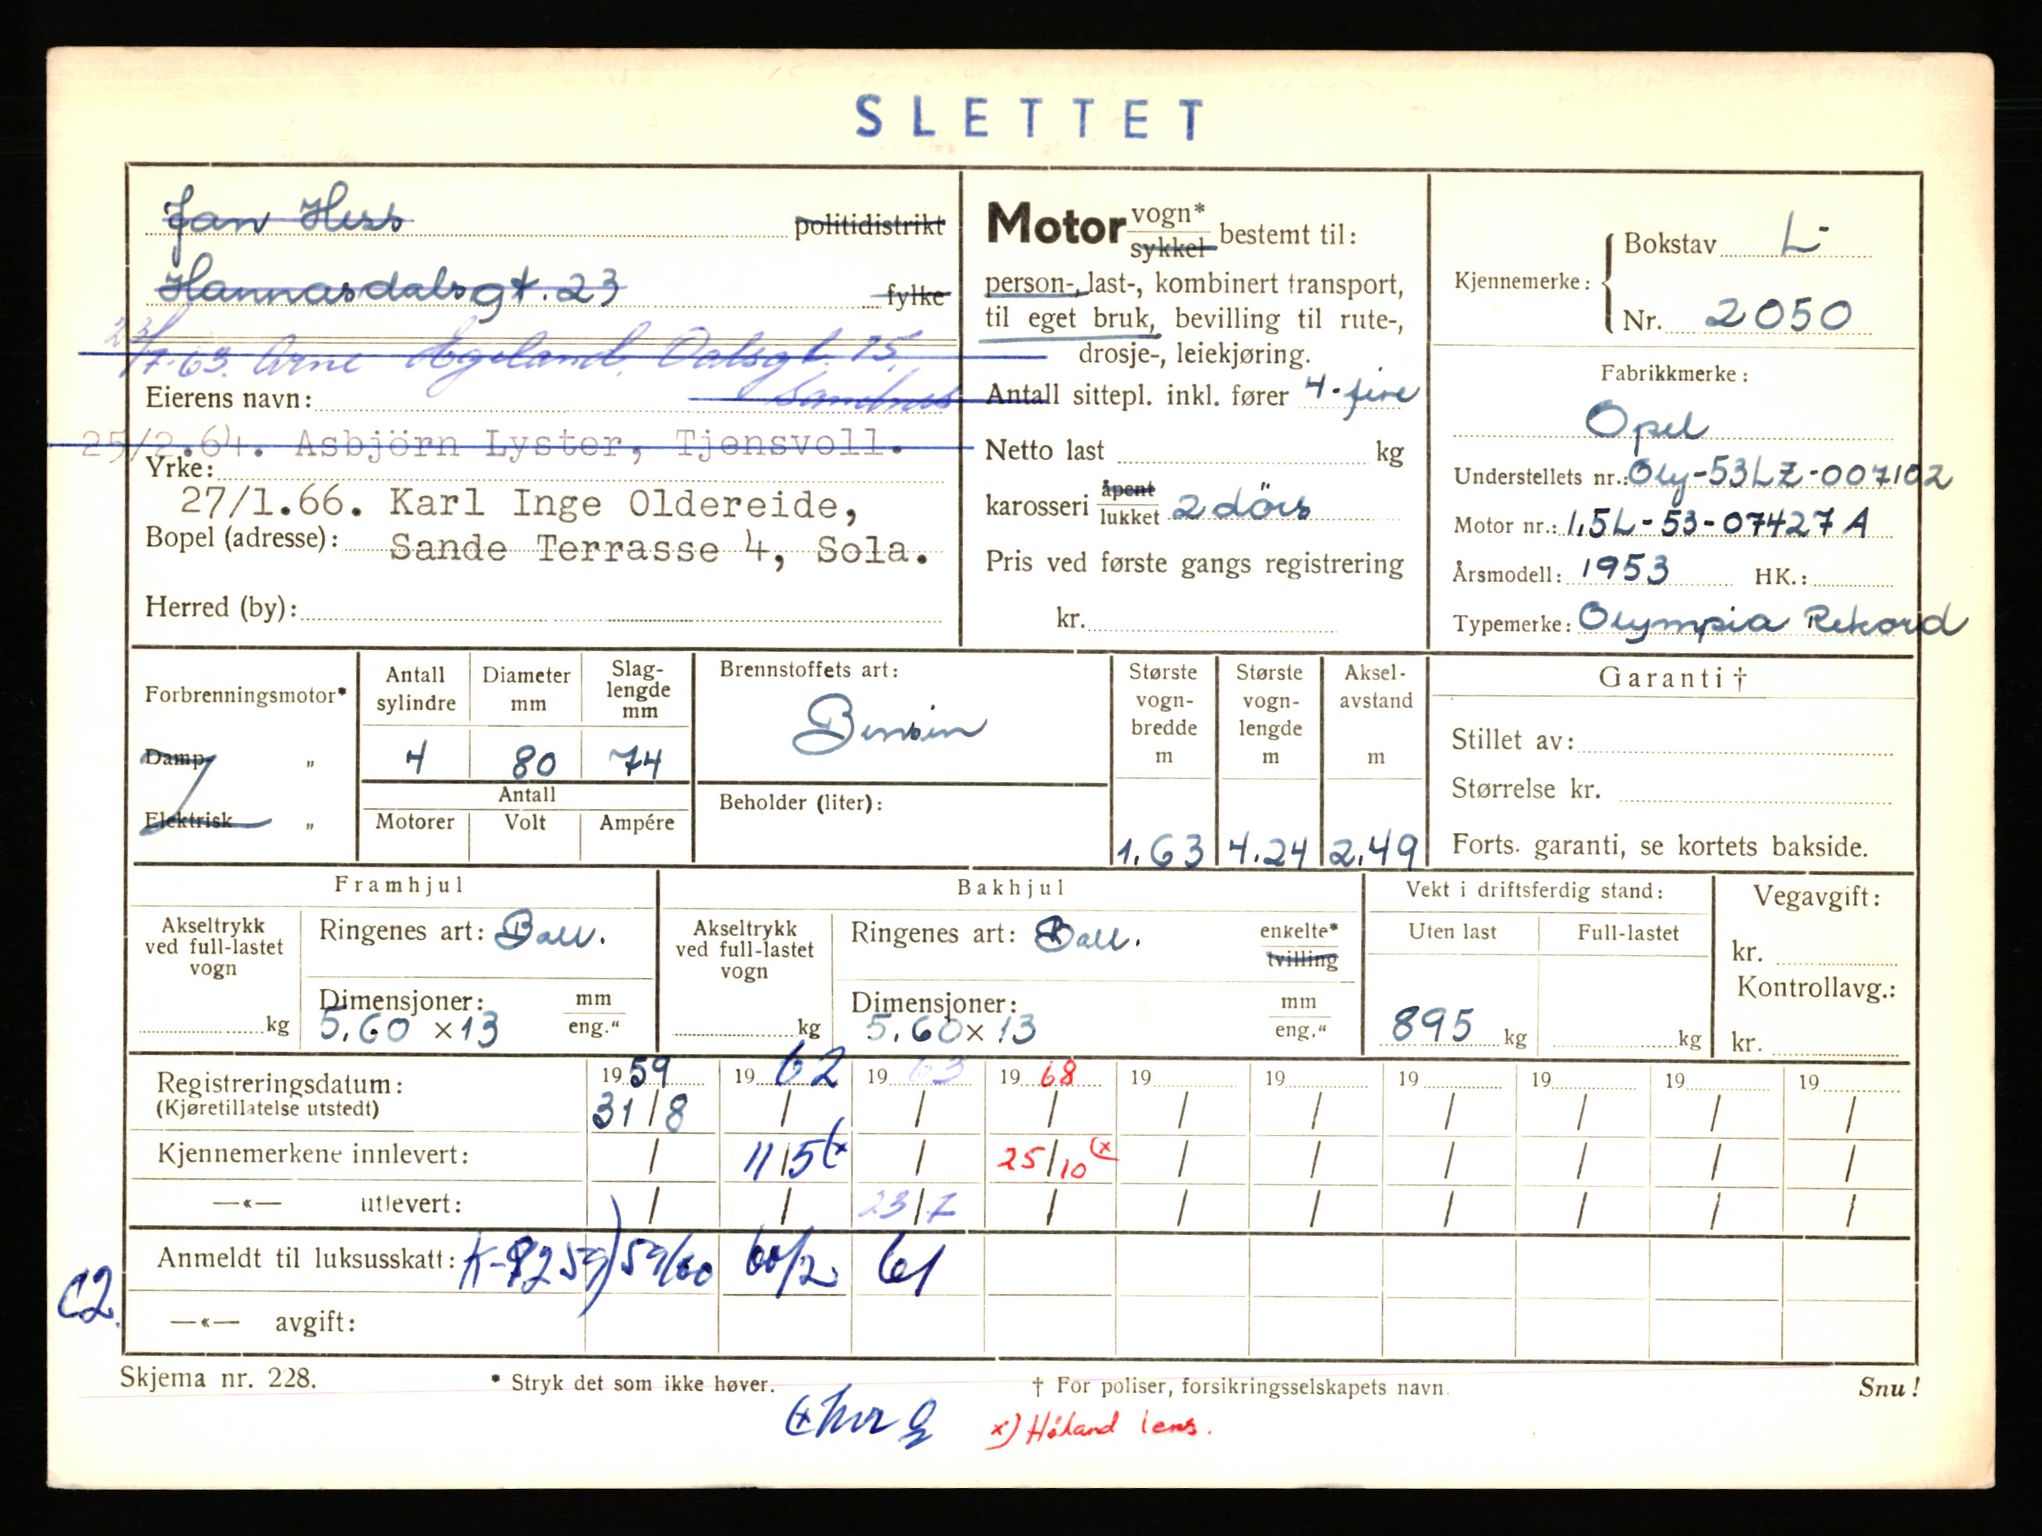 SLETTET
Jan Hess politidistrikt
Hannasdalsgt. 23 fylke
23/7-63. Arne Egeland, Dalsgt. 15,
Sandnes
Eierens navn:
25/2.64. Asbjörn Lyster, Tjensvoll.
Yrke:
27/1.66. Karl Inge Oldereide,
Bopel (adresse): Sande Terrasse 4, Sola.
Herred (by):
Motor vogn* sykkel bestemt til:
person-, last-, kombinert transport,
til eget bruk, bevilling til rute-,
drosje-, leiekjøring.
Antall sittepl. inkl. fører 4-fire
Netto last kg
karosseri åpent lukket 2 dörs
Pris ved første gangs registrering
kr.
Kjennemerke: Bokstav L-
Nr. 2050
Fabrikkmerke:
Opel
Understellets nr.: Oly-53LZ-007102
Motor nr.: 1,5L-53-07427A
Årsmodell: 1953 HK.:
Typemerke: Olympia Rekord
Forbrenningsmotor*
Damp „
Elektrisk „
Antall sylindre
Diameter mm
Slag-lengde mm
4 80 74
Antall
Motorer Volt Ampére
Brennstoffets art:
Bensin
Beholder (liter):
Største vogn-bredde m
Største vogn-lengde m
Aksel-avstand m
1.63 4.24 2.49
Garanti †
Stillet av:
Størrelse kr.
Forts. garanti, se kortets bakside.
Framhjul
Akseltrykk ved full-lastet vogn
kg
Ringenes art: Ball.
Dimensjoner: mm
5.60 x 13 eng."
Bakhjul
Akseltrykk ved full-lastet vogn
kg
Ringenes art: Ball. enkelte* tvilling
Dimensjoner: mm
5.60 x 13 eng."
Vekt i driftsferdig stand:
Uten last Full-lastet
895 kg kg
Vegavgift:
kr.
Kontrollavg.:
kr.
Registreringsdatum: 1959 1962 1963 1968 19 19 19 19 19 19
(Kjøretillatelse utstedt) 31/8 / / / / / / / / /
Kjennemerkene innlevert: / 11/5 (x / 25/10 (x / / / / / /
—«— utlevert: / / 23/7 / / / / / / /
Anmeldt til luksusskatt: K-8259) 59/60 60/2 61
C2.
—«— avgift:
Skjema nr. 228. * Stryk det som ikke høver. † For poliser, forsikringsselskapets navn. Snu!
x) Höland lens.